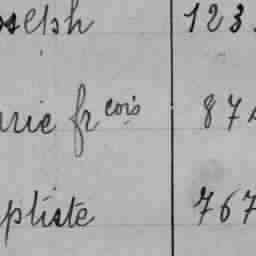 oseph 123.
arie frcois 871
ptiste 767